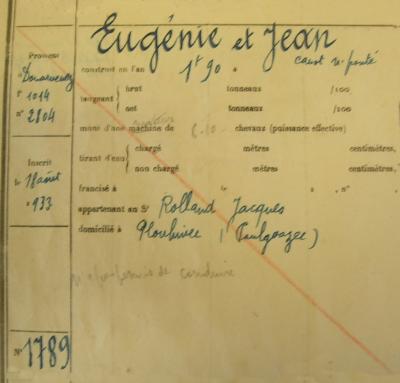 Eugénie et Jean
canot n-ponté
Provient
Douarnenez
f° 1014
n° 2804
construit en l'an 1t90 à
jaugeant brut tonneaux /100
net tonneaux /100
muni d'une machine de 6.10 chevaux (puissance effective)
tirant d'eau chargé mètres centimètres,
non chargé mètres centimètres,
Inscrit
le 18 août
1933
francisé à le , n°
appartenant au Sr Rolland Jacques
domicilié à Plouhinec (Poulgoazec)
n'a pas permis de conduire
N° 1789